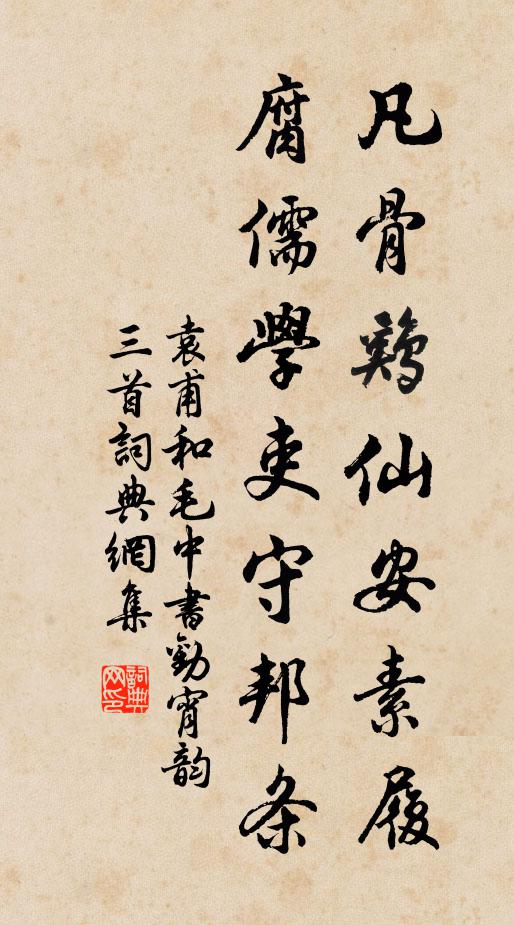 凡骨鷄仙安素履
腐儒學吏守邦条
袁甫和毛中書勸宵韵
三首詞典網集
詞典网印